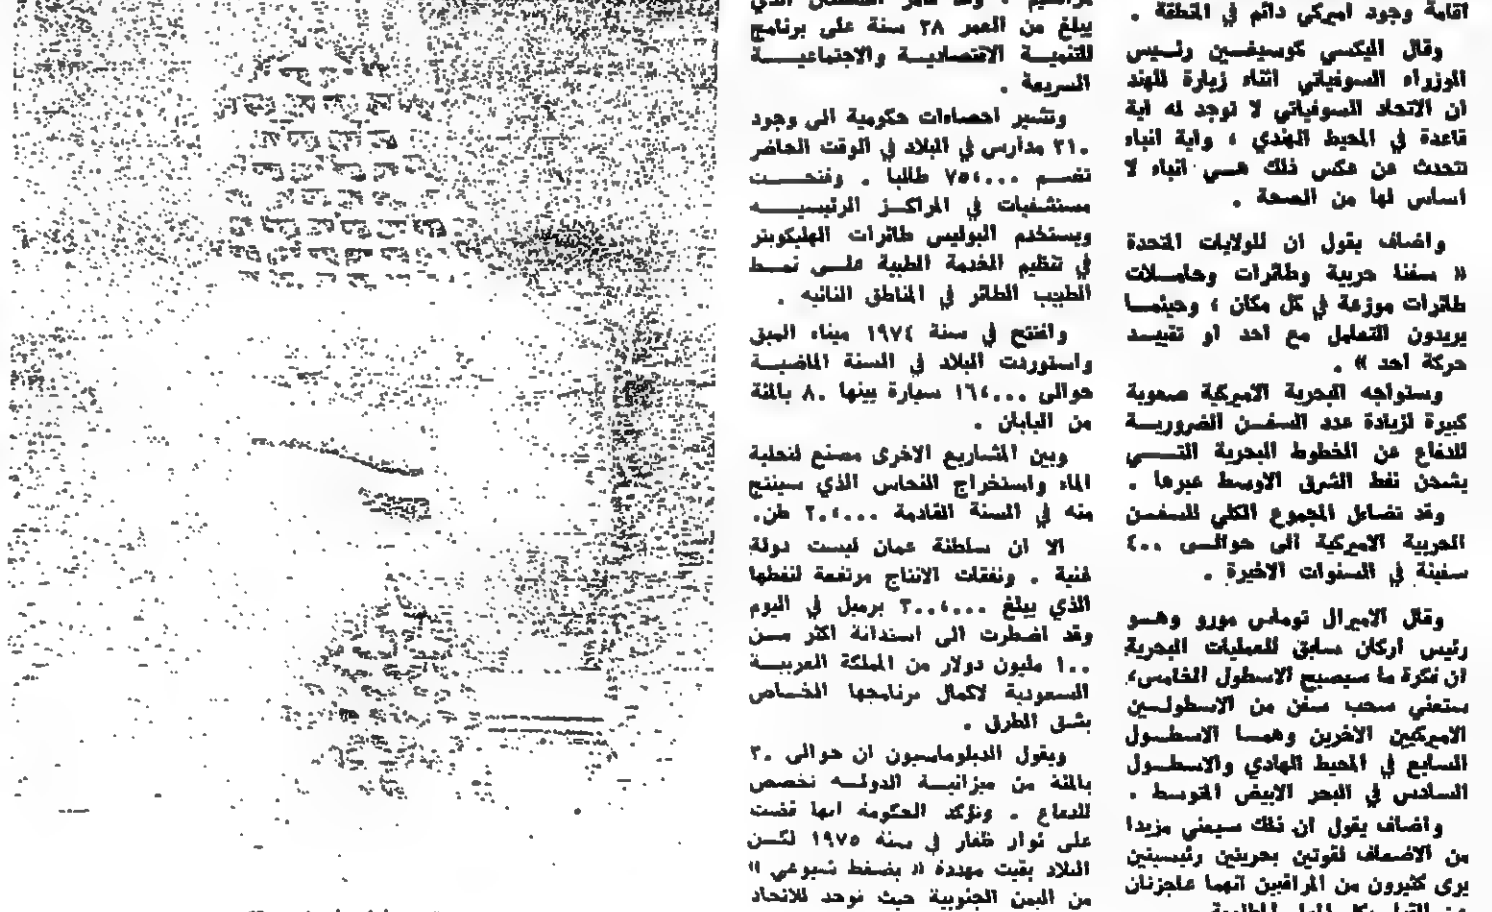 اقامة وجود اميركي دائم في المنطقة .
وقال اليكسي كوسيغين رئيس
الوزراء السوفياتي اثناء زيارة للهند
ان الاتحاد السوفياتي لا توجد له اية
قاعدة في المحيط الهندي ، واية انباء
تتحدث عن عكس ذلك هي انباء لا
اساس لها من الصحة .
واضاف يقول ان للولايات المتحدة
« سفنا حربية وطائرات وحاملات
طائرات موزعة في كل مكان ، وحيثما
يريدون التعامل مع احد او تقييد
حركة احد » .
وستواجه البحرية الاميركية صعوبة
كبيرة لزيادة عدد السفن الضرورية
للدفاع عن الخطوط البحرية التي
يشحن نفط الشرق الاوسط عبرها .
وقد تضاءل المجموع الكلي للسفن
الحربية الاميركية الى حوالي ٤٠٠
سفينة في السنوات الاخيرة .
وقال الاميرال توماس مورو وهو
رئيس اركان سابق للعمليات البحرية
ان فكرة ما سيصبح الاسطول الخامس،
ستعني سحب سفن من الاسطولين
الاميركيين الاخرين وهما الاسطول
السابع في المحيط الهادي والاسطول
السادس في البحر الابيض المتوسط .
واضاف يقول ان ذلك سيعني مزيدا
من الاضعاف لقوتين بحريتين رئيسيتين
يرى كثيرون من المراقبين انهما عاجزتان
يبلغ من العمر ٣٨ سنة على برنامج
للتنمية الاقتصادية والاجتماعية
السريعة .
وتشير احصاءات حكومية الى وجود
٢١٠ مدارس في البلاد في الوقت الحاضر
تضم ٧٥٤٠٠٠ طالبا . وفتحت
مستشفيات في المراكز الرئيسية
ويستخدم البوليس طائرات الهليكوبتر
في تنظيم الخدمة الطبية على نمط
الطبيب الطائر في المناطق النائية .
وافتتح في سنة ١٩٧٤ ميناء
واستوردت البلاد في السنة الماضية
حوالى ١٦٤٠٠٠ سيارة بينها ٨٠ بالمئة
من اليابان .
وبين المشاريع الاخرى مصنع لتحلية
الماء واستخراج النحاس الذي سينتج
منه في السنة القادمة ٢٠٤٠٠٠ طن.
الا ان سلطنة عمان ليست دولة
غنية . ونفقات الانتاج مرتفعة لنفطها
الذي يبلغ ٣٠٠٤٠٠٠ برميل في اليوم
وقد اضطرت الى استدانة اكثر من
١٠٠ مليون دولار من المملكة العربية
السعودية لاكمال برنامجها الخاص
بشق الطرق .
ويقول الدبلوماسيون ان حوالى ٣٠
بالمئة من ميزانية الدولة تخصص
للدفاع . وتؤكد الحكومة انها قضت
على ثوار ظفار في سنة ١٩٧٥ لكن
البلاد بقيت مهددة « بضغط شيوعي »
من اليمن الجنوبية حيث توجد للاتحاد